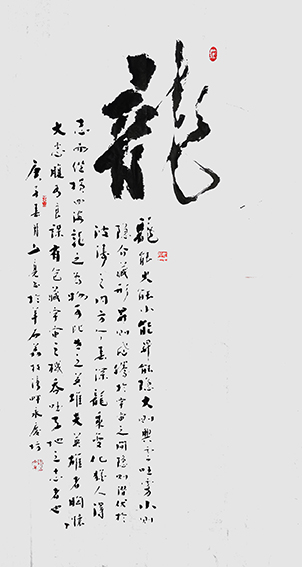 龍
龍能大能小能昇能隱大則興雲吐雾小則
隱介藏形昇則飛騰於宇宙之間隱則潛伏於
波濤之內方今春深龍乘变化猶人得
志而縱橫四海龍之為物可比世之英雄夫英雄者胸懷
大志腹有良謀有包藏宇宙之機吞吐天地之志者也
庚子春月